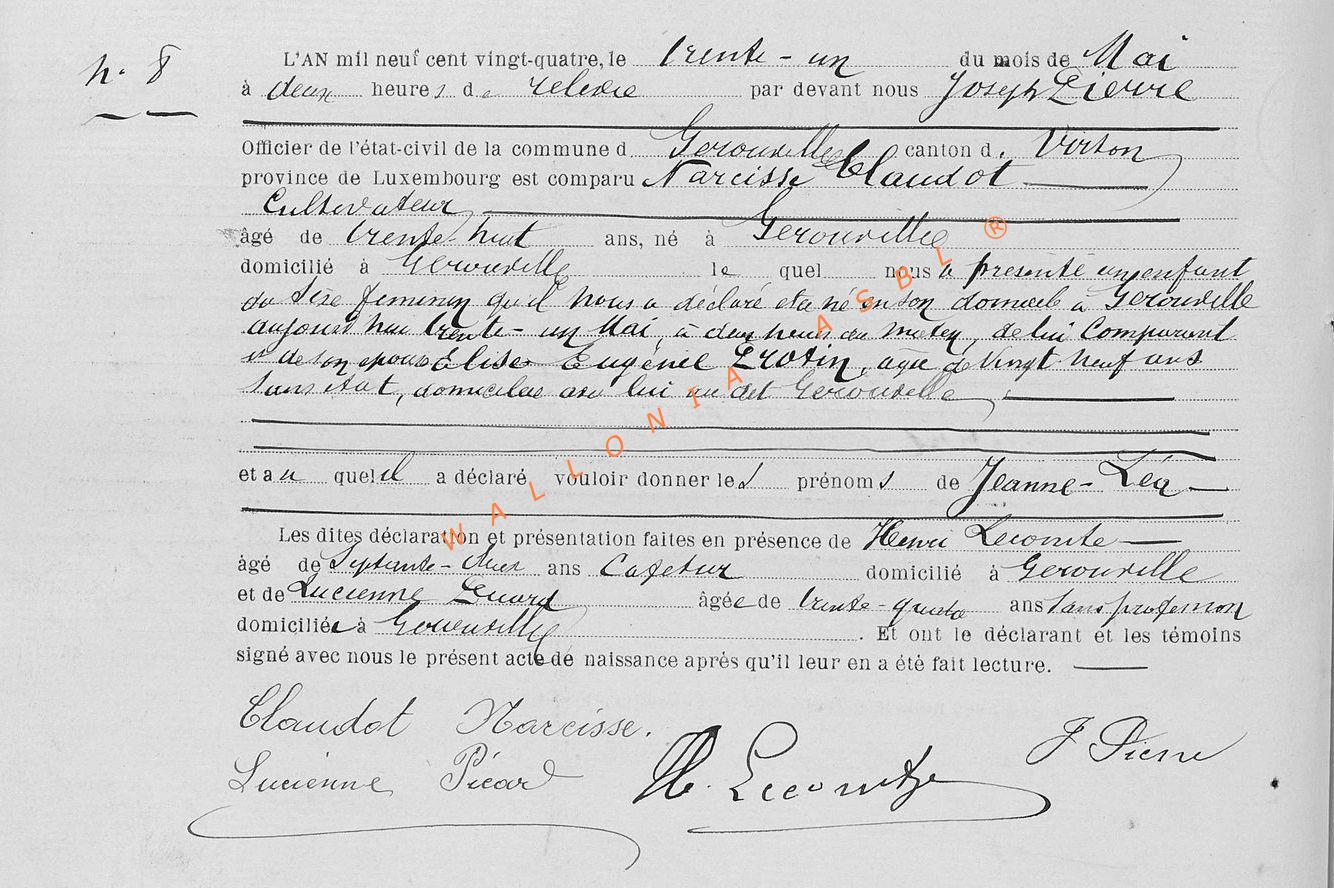 n° 8
L'AN mil neuf cent vingt-quatre, le trente-un du mois de Mai
à deux heures de relevée par devant nous Joseph Pierre
Officier de l'état-civil de la commune d Gerouville canton de Virton
province de Luxembourg est comparu Narcisse Claudot
Cultivateur
âgé de trente-huit ans, né à Gerouville
domicilié à Gerouville le quel nous a présenté un enfant
du sexe feminin qu'il nous a déclaré etre né en son domicile à Gerouville
aujourd'hui trente-un Mai, à deux heures du matin, de lui Comparant
et de son epouse Elise Eugénie Protin, agée de vingt neuf ans
sans etat, domiciliée avec lui au dit Gerouville
et au quel il a déclaré vouloir donner les prénoms de Jeanne-Léa
Les dites déclaration et présentation faites en présence de Henri Lecomte
âgé de Septante-deux ans Cafetier domicilié à Gerouville
et de Lucienne Picard âgée de trente-quatre ans sans profession
domiciliée à Gerouville. Et ont le déclarant et les témoins
signé avec nous le présent acte de naissance après qu'il leur en a été fait lecture.
Claudot Narcisse.
Lucienne Picard H. Lecomte J Pierre
WALLONIA ASBL ®